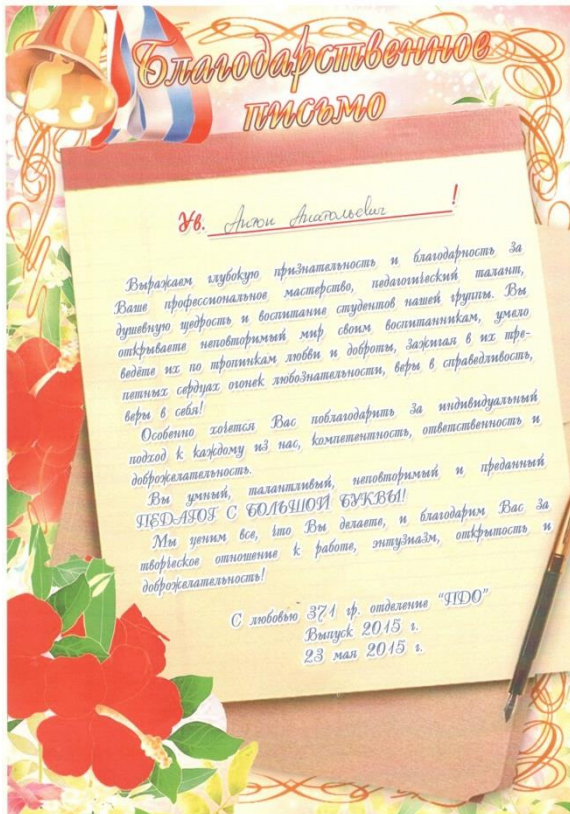 Благодарственное
письмо
Ув. Антон Анатольевич !
Выражаем глубокую признательность и благодарность за
Ваше профессиональное мастерство, педагогический талант,
душевную щедрость и воспитание студентов нашей группы. Вы
открываете неповторимый мир своим воспитанникам, умело
ведёте их по тропинкам любви и доброты, зажигая в их тре-
петных сердцах огонек любознательности, веры в справедливость,
веры в себя!
Особенно хочется Вас поблагодарить за индивидуальный
подход к каждому из нас, компетентность, ответственность и
доброжелательность.
Вы умный, талантливый, неповторимый и преданный
ПЕДАГОГ С БОЛЬШОЙ БУКВЫ!
Мы ценим все, что Вы делаете, и благодарим Вас за
творческое отношение к работе, энтузиазм, открытость и
доброжелательность!
С любовью 371 гр. отделение "ПДО"
Выпуск 2015 г.
23 мая 2015 г.